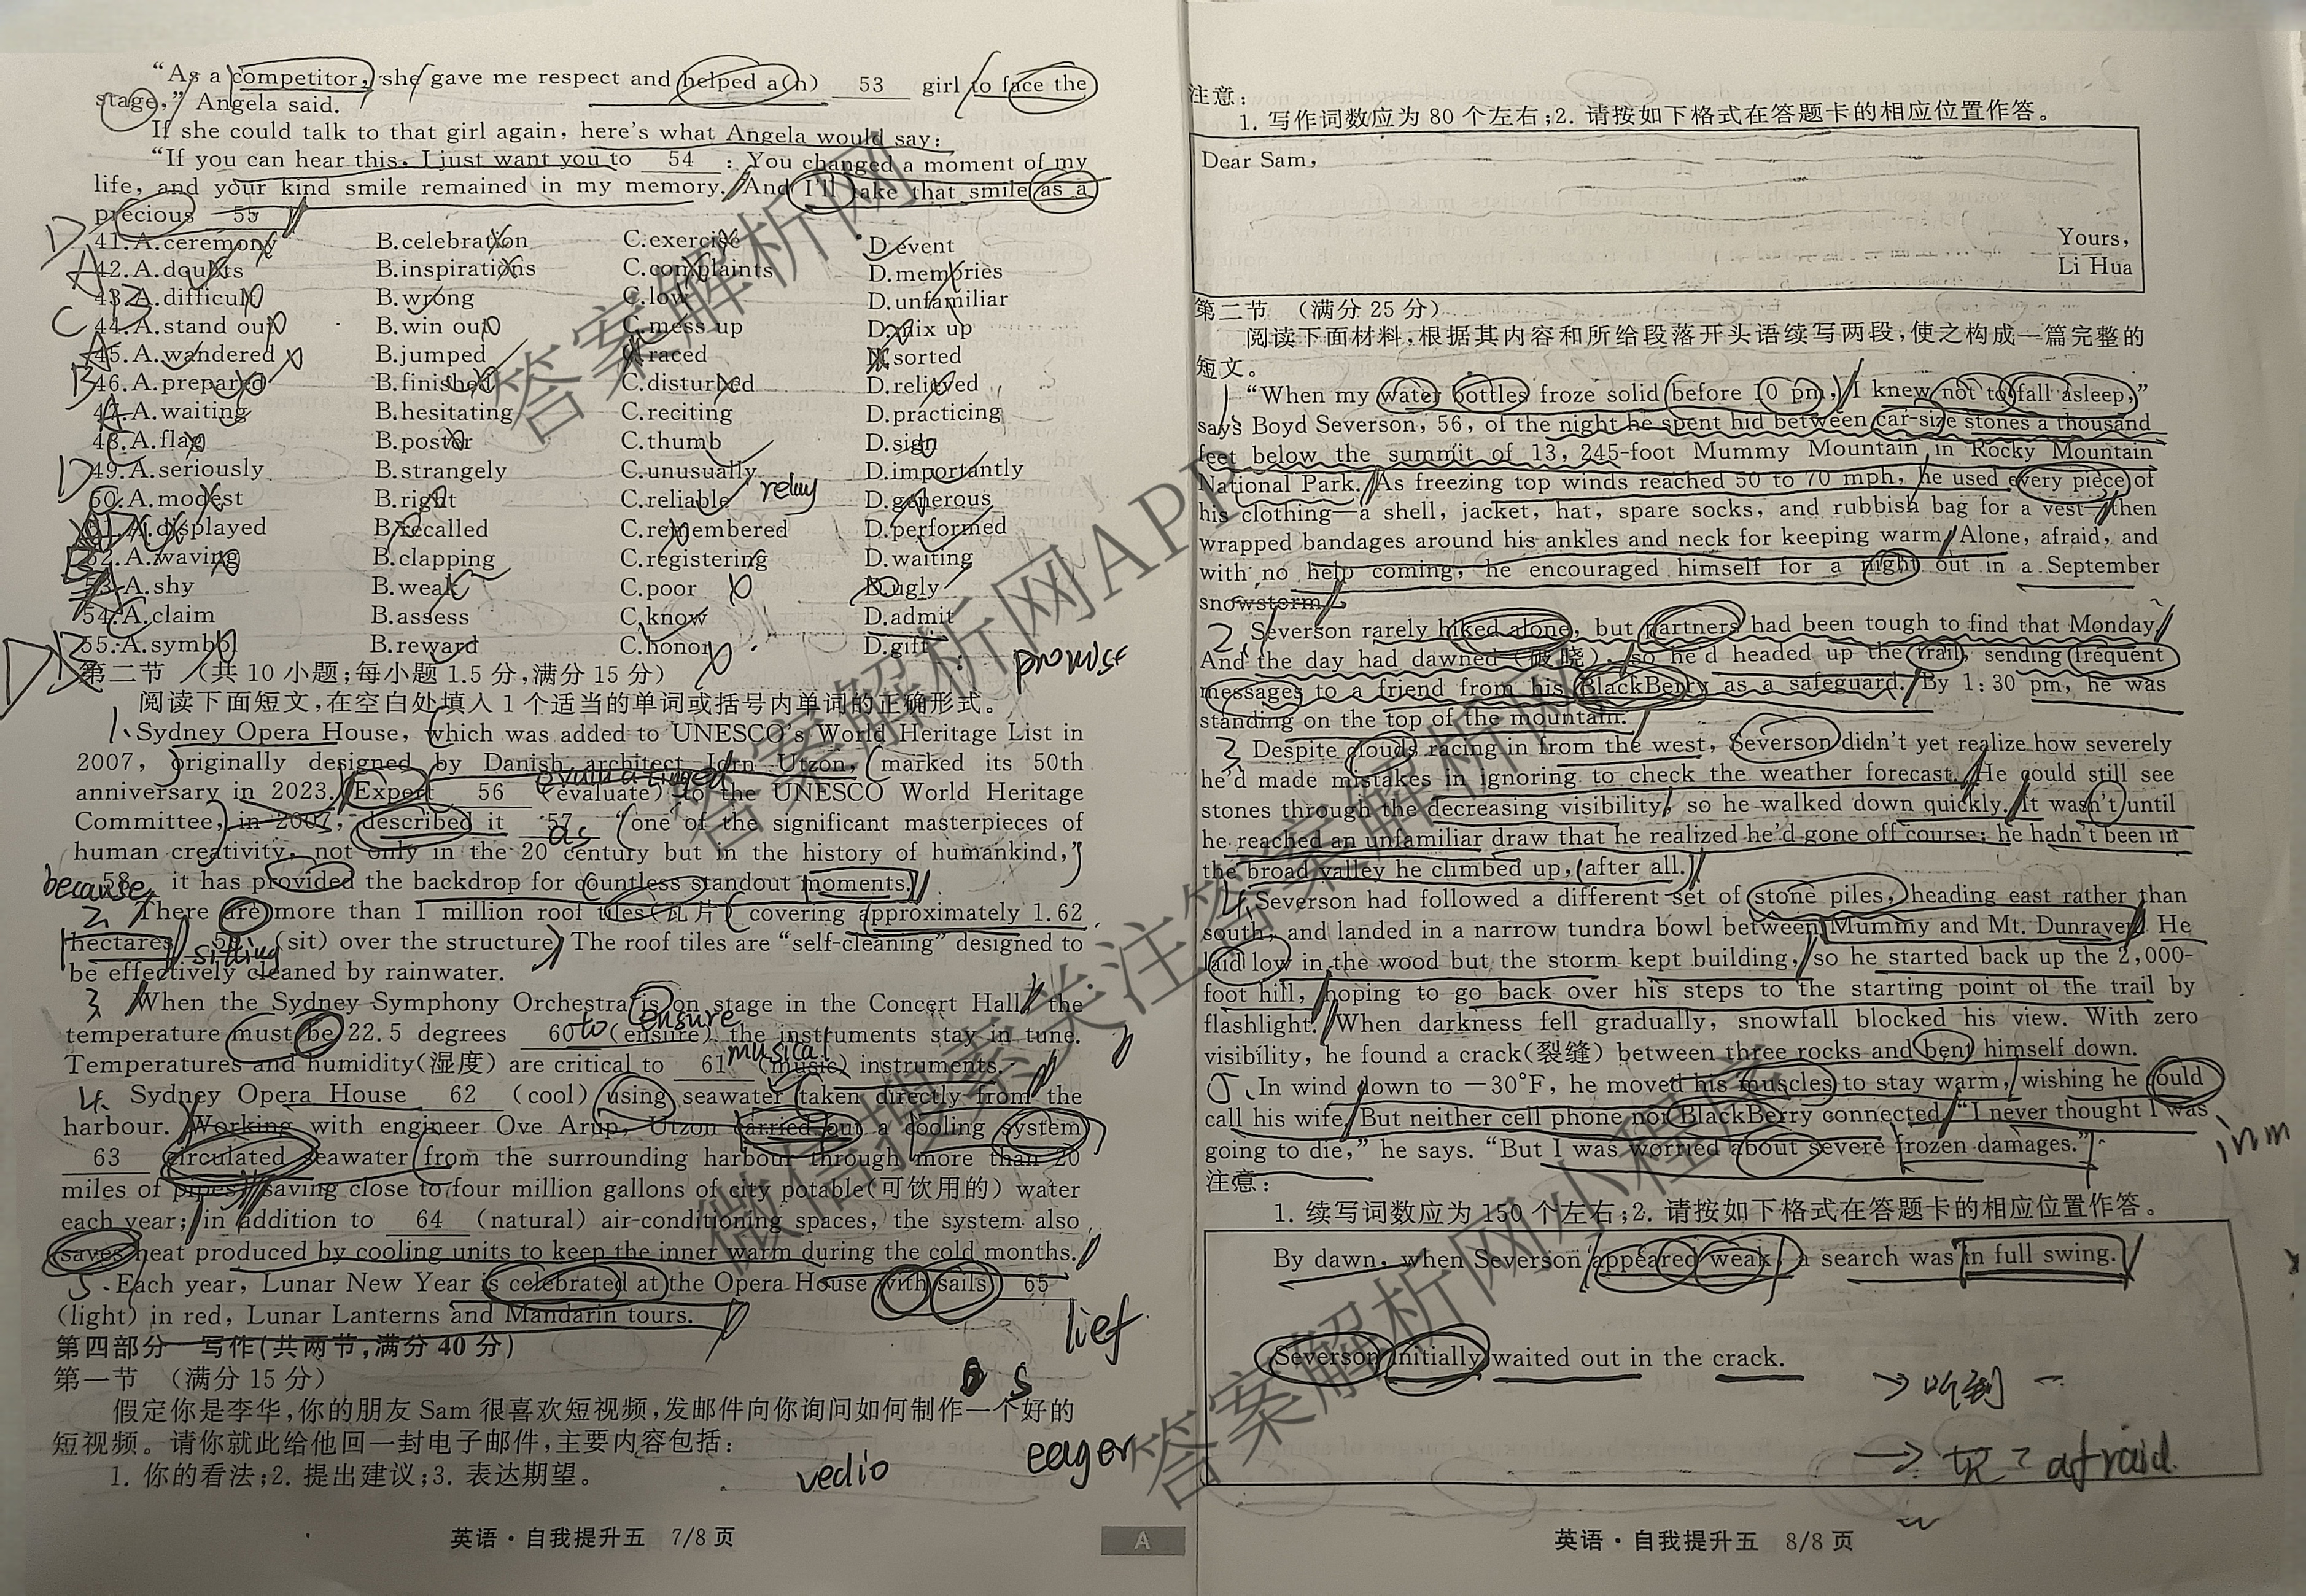 "As a competitor, she gave me respect and helped a(n) 53 girl to face the
stage," Angela said.
If she could talk to that girl again, here's what Angela would say:
"If you can hear this, I just want you to 54 : You changed a moment of my
life, and your kind smile remained in my memory. And I'll take that smile as a
precious 55
D 41. A.ceremony B.celebration C.exercise D.event
A 42. A.doubts B.inspirations C.complaints D.memories
B 43. A.difficult B.wrong C.low D.unfamiliar
C 44. A.stand out B.win out C.mess up D.mix up
A 45. A.wandered B.jumped C.raced D.sorted
B 46. A.prepared B.finished C.disturbed D.relieved
47. A.waiting B.hesitating C.reciting D.practicing
C 48. A.flag B.poster C.thumb D.sign
D 49. A.seriously B.strangely C.unusually D.importantly
50. A.modest B.right C.reliable D.generous
51. A.displayed B.recalled C.remembered D.performed
B 52. A.waving B.clapping C.registering D.waiting
A 53. A.shy B.weak C.poor D.ugly
C 54. A.claim B.assess C.know D.admit
D 55. A.symbol B.reward C.honor D.gift
promise
第二节 (共 10 小题;每小题 1.5 分,满分 15 分)
阅读下面短文,在空白处填入 1 个适当的单词或括号内单词的正确形式。
1、Sydney Opera House, which was added to UNESCO's World Heritage List in
2007, originally designed by Danish architect Jørn Utzon, marked its 50th
anniversary in 2023. Expert 56 (evaluate) to the UNESCO World Heritage
Committee, in 2007, described it 57 as "one of the significant masterpieces of
human creativity, not only in the 20 century but in the history of humankind,"
because 58 it has provided the backdrop for countless standout moments.
2、There are more than 1 million roof tiles(瓦片) covering approximately 1.62
hectares sitting (sit) over the structure. The roof tiles are "self-cleaning" designed to
be effectively cleaned by rainwater.
3、When the Sydney Symphony Orchestra is on stage in the Concert Hall, the
temperature must be 22.5 degrees 60 to ensure (ensure) the instruments stay in tune.
Temperatures and humidity(湿度) are critical to 61 musical (music) instruments.
4、Sydney Opera House 62 (cool) using seawater taken directly from the
harbour. Working with engineer Ove Arup, Utzon carried out a cooling system
63 circulated seawater from the surrounding harbour through more than 20
miles of pipes, saving close to four million gallons of city potable(可饮用的) water
each year; in addition to 64 (natural) air-conditioning spaces, the system also
saves heat produced by cooling units to keep the inner warm during the cold months.
5、Each year, Lunar New Year is celebrated at the Opera House with sails 65
(light) in red, Lunar Lanterns and Mandarin tours.
第四部分 写作(共两节,满分 40 分)
第一节 (满分 15 分)
假定你是李华,你的朋友 Sam 很喜欢短视频,发邮件向你询问如何制作一个好的
短视频。请你就此给他回一封电子邮件,主要内容包括:
1. 你的看法;2. 提出建议;3. 表达期望。
vedio
eager
英语·自我提升五 7/8 页
A
注意:
1. 写作词数应为 80 个左右;2. 请按如下格式在答题卡的相应位置作答。
Dear Sam,
Yours,
Li Hua
第二节 (满分 25 分)
阅读下面材料,根据其内容和所给段落开头语续写两段,使之构成一篇完整的
短文。
1、"When my water bottles froze solid before 10 pm, I knew not to fall asleep,"
says Boyd Severson, 56, of the night he spent hid between car-size stones a thousand
feet below the summit of 13, 245-foot Mummy Mountain in Rocky Mountain
National Park. As freezing top winds reached 50 to 70 mph, he used every piece of
his clothing—a shell, jacket, hat, spare socks, and rubbish bag for a vest—then
wrapped bandages around his ankles and neck for keeping warm. Alone, afraid, and
with no help coming, he encouraged himself for a night out in a September
snowstorm.
2、Severson rarely hiked alone, but partners had been tough to find that Monday.
And the day had dawned (破晓), so he'd headed up the trail, sending frequent
messages to a friend from his BlackBerry as a safeguard. By 1:30 pm, he was
standing on the top of the mountain.
3、Despite clouds racing in from the west, Severson didn't yet realize how severely
he'd made mistakes in ignoring to check the weather forecast. He could still see
stones through the decreasing visibility, so he walked down quickly. It wasn't until
he reached an unfamiliar draw that he realized he'd gone off course; he hadn't been in
the broad valley he climbed up, after all.
4、Severson had followed a different set of stone piles, heading east rather than
south, and landed in a narrow tundra bowl between Mummy and Mt. Dunraven. He
laid low in the wood but the storm kept building, so he started back up the 2,000-
foot hill, hoping to go back over his steps to the starting point of the trail by
flashlight. When darkness fell gradually, snowfall blocked his view. With zero
visibility, he found a crack(裂缝) between three rocks and bent himself down.
5、In wind down to －30℉, he moved his muscles to stay warm, wishing he could
call his wife. But neither cell phone nor BlackBerry connected. "I never thought I was
going to die," he says. "But I was worried about severe frozen damages."
注意:
1. 续写词数应为 150 个左右;2. 请按如下格式在答题卡的相应位置作答。
By dawn, when Severson appeared weak, a search was in full swing.
Severson initially waited out in the crack.
afraid
英语·自我提升五 8/8 页
答案解析网
微信搜索关注答案解析网APP
答案解析网小程序